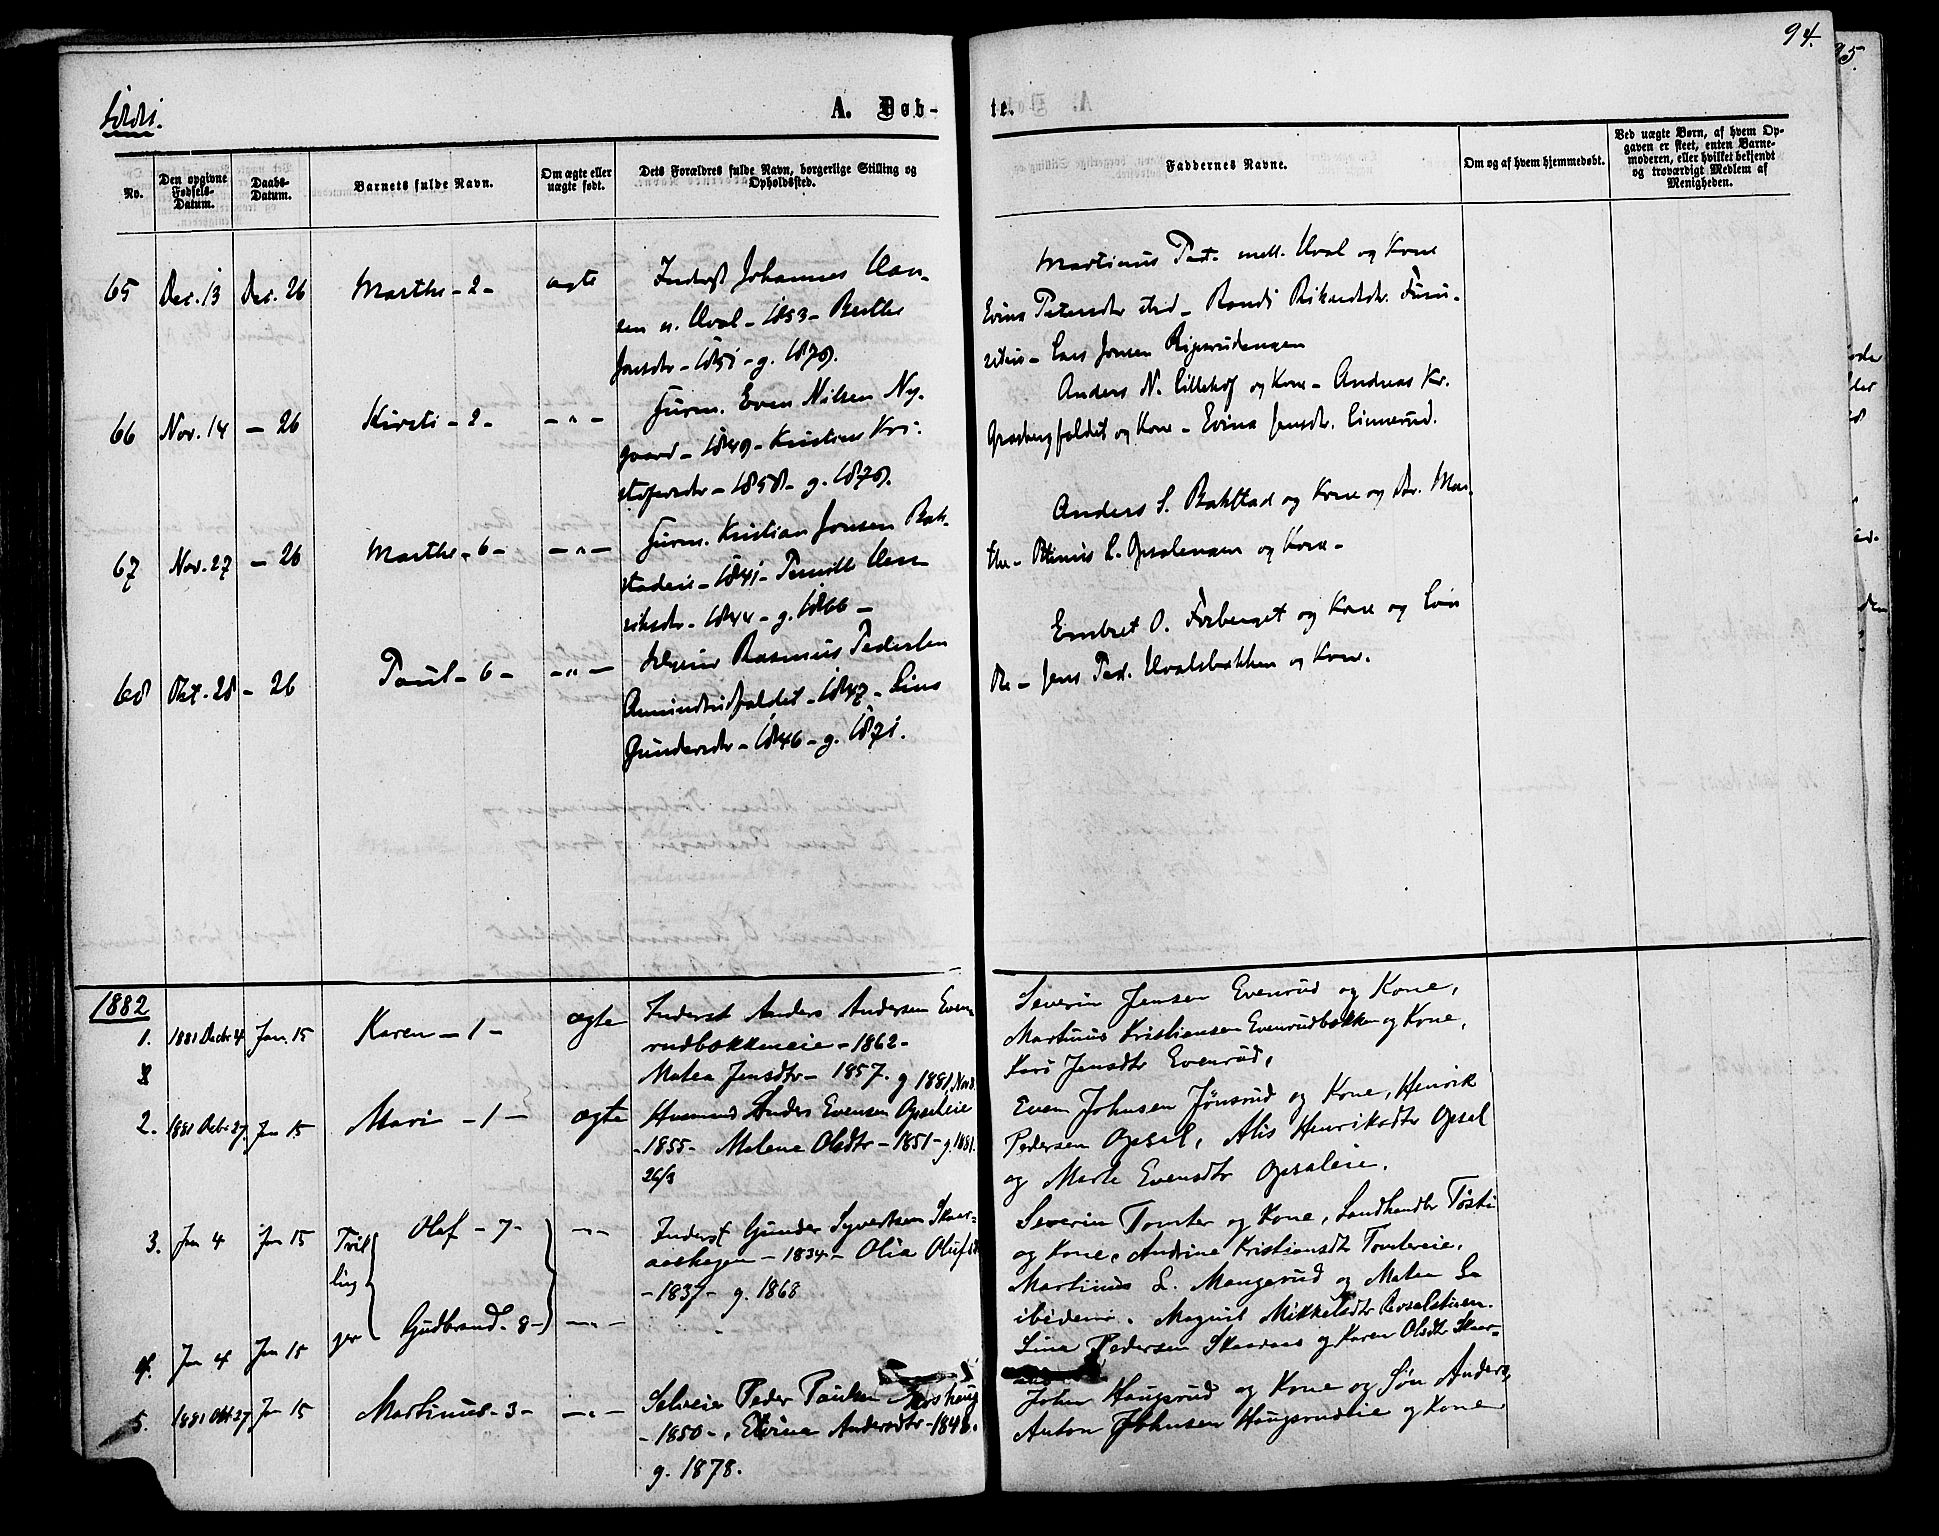 94.
95.
1881.
A. Døb-
te.
No.
Den opgivne Fødsels-Datum.
Daabs-Datum.
Barnets fulde Navn.
Om ægte eller uægte født.
Dets Forældres fulde Navn, borgerlige Stilling og Opholdssted.
Faddernes Navne.
Om og af hvem hjemmedøbt.
Ved uægte Børn, af hvem Opgaven er skeet, enten Barnemoderen, eller hvilket bekjendt og troværdigt Medlem af Menigheden.
65 Dec. 13 Dec. 26 Marthe - 2 - ægte Inderst Johannes Han-
sen n. Hval - 1853 - Berthe
Jensdtr - 1851 - g. 1879.
Martinus Ped. mell. Hval og Kone
Evina Petersdtr sted - Randi Rikardsdtr. Furu-
- Lars Jonsen Ripsrudengen
66 Nov. 14 - 26 Kirsti - 2 - - " - Gurm. Even Nilsen Ny-
gaard - 1849 - Kristine Kri-
stofersdtr - 1858 - g. 1879.
Anders N. Lillehof og Kone - Andreas Kr.
Graabergfaldet og Kone - Evina Jensdtr. Linnerud.
67 Nov. 27 - 26 Marthe - 6 - - " - Gurm. Kristian Jonsen Bak-
stadeie - 1841 - Pernille Hen-
riksdtr - 1844 - g. 1866 -
Anders S. Bakstad og Kone og Mar-
the - L. Opsalengen og Kone -
68 Okt. 28 - 26 Paul - 6 - - " - Selveier Rasmus Pedersen
Amundrudfaldet - 1847 - Lina
Gundersdtr - 1846 - g. 1871.
Embret O. Forberget og Kone og
- Jens Ped. Hvalsbakken og Kone.
1882
1. 1881 Decbr 4 Jan. 15 Karen - 1 - ægte Inderst Anders Andersen Even-
rudbakkeneie - 1862 -
Matea Jensdtr - 1857. g 1881, Nov 8.
Severin Jensen Evenrud og Kone,
Martinus Kristiansen Evenrudbakken og Kone,
Kari Jensdtr Evenrud,
2. 1881 Decbr 27. Jan 15 Mari - 1 - ægte Husmand Anders Evensen Opsaleie
- 1855 - Malene Olsdtr - 1851 - g. 1881.
26/3
Even Johnsen Jønsrud og Kone, Henrik
Pedersen Opsal, Alis Henriksdtr Opsal
og Marte Evensdtr Opsaleie.
3. Jan 4 Jan 15 Tvil
ling
ger
Olaf - 7 - - " - Inderst Gunder Syvertsen Skaar-
aashagen - 1834 - Olia Olufsdtr
- 1837 - g. 1868
4. Jan 4 Jan 15 Gudbrand - 8 - - " -
Severin Tomter og Kone, Landhandler Tøsti
og Kone, Andrine Kristiansdtr Tomtereie.
Martinus L. Mangerud og Matea La
ibidem. Magnil Mikkelsdtr
Lina Pedersen Skaaraas og Karen Olsdtr Skaar-
aas
5. 1881 Okt 27 Jan 15 Martinus - 3 - - " - Selveier Peder Paulsen
- 1850 -, Elvina Andersdtr - 1848.
g. 1878.
John Haugsrud og Kone og Søn Anders,
Anton Johnsen Haugsrudeie og Kone